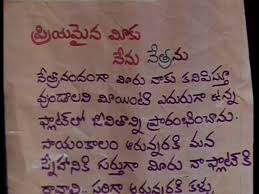 ప్రియమైన మీకు
నేను నేత్రను
నేత్రానందంగా మీరు నాకు కనిపిస్తూ
వుండాలని మీయింటి ఎదురుగా ఉన్న
ఫ్లాట్‌లో జీవితాన్ని ప్రారంభించాను.
సాయంకాలం ఆరున్నరకి మన
స్నేహానికి గుర్తుగా మీరు నా ఫ్లాట్ కి
రావాలి.. సరిగ్గా ఆరున్నరకి